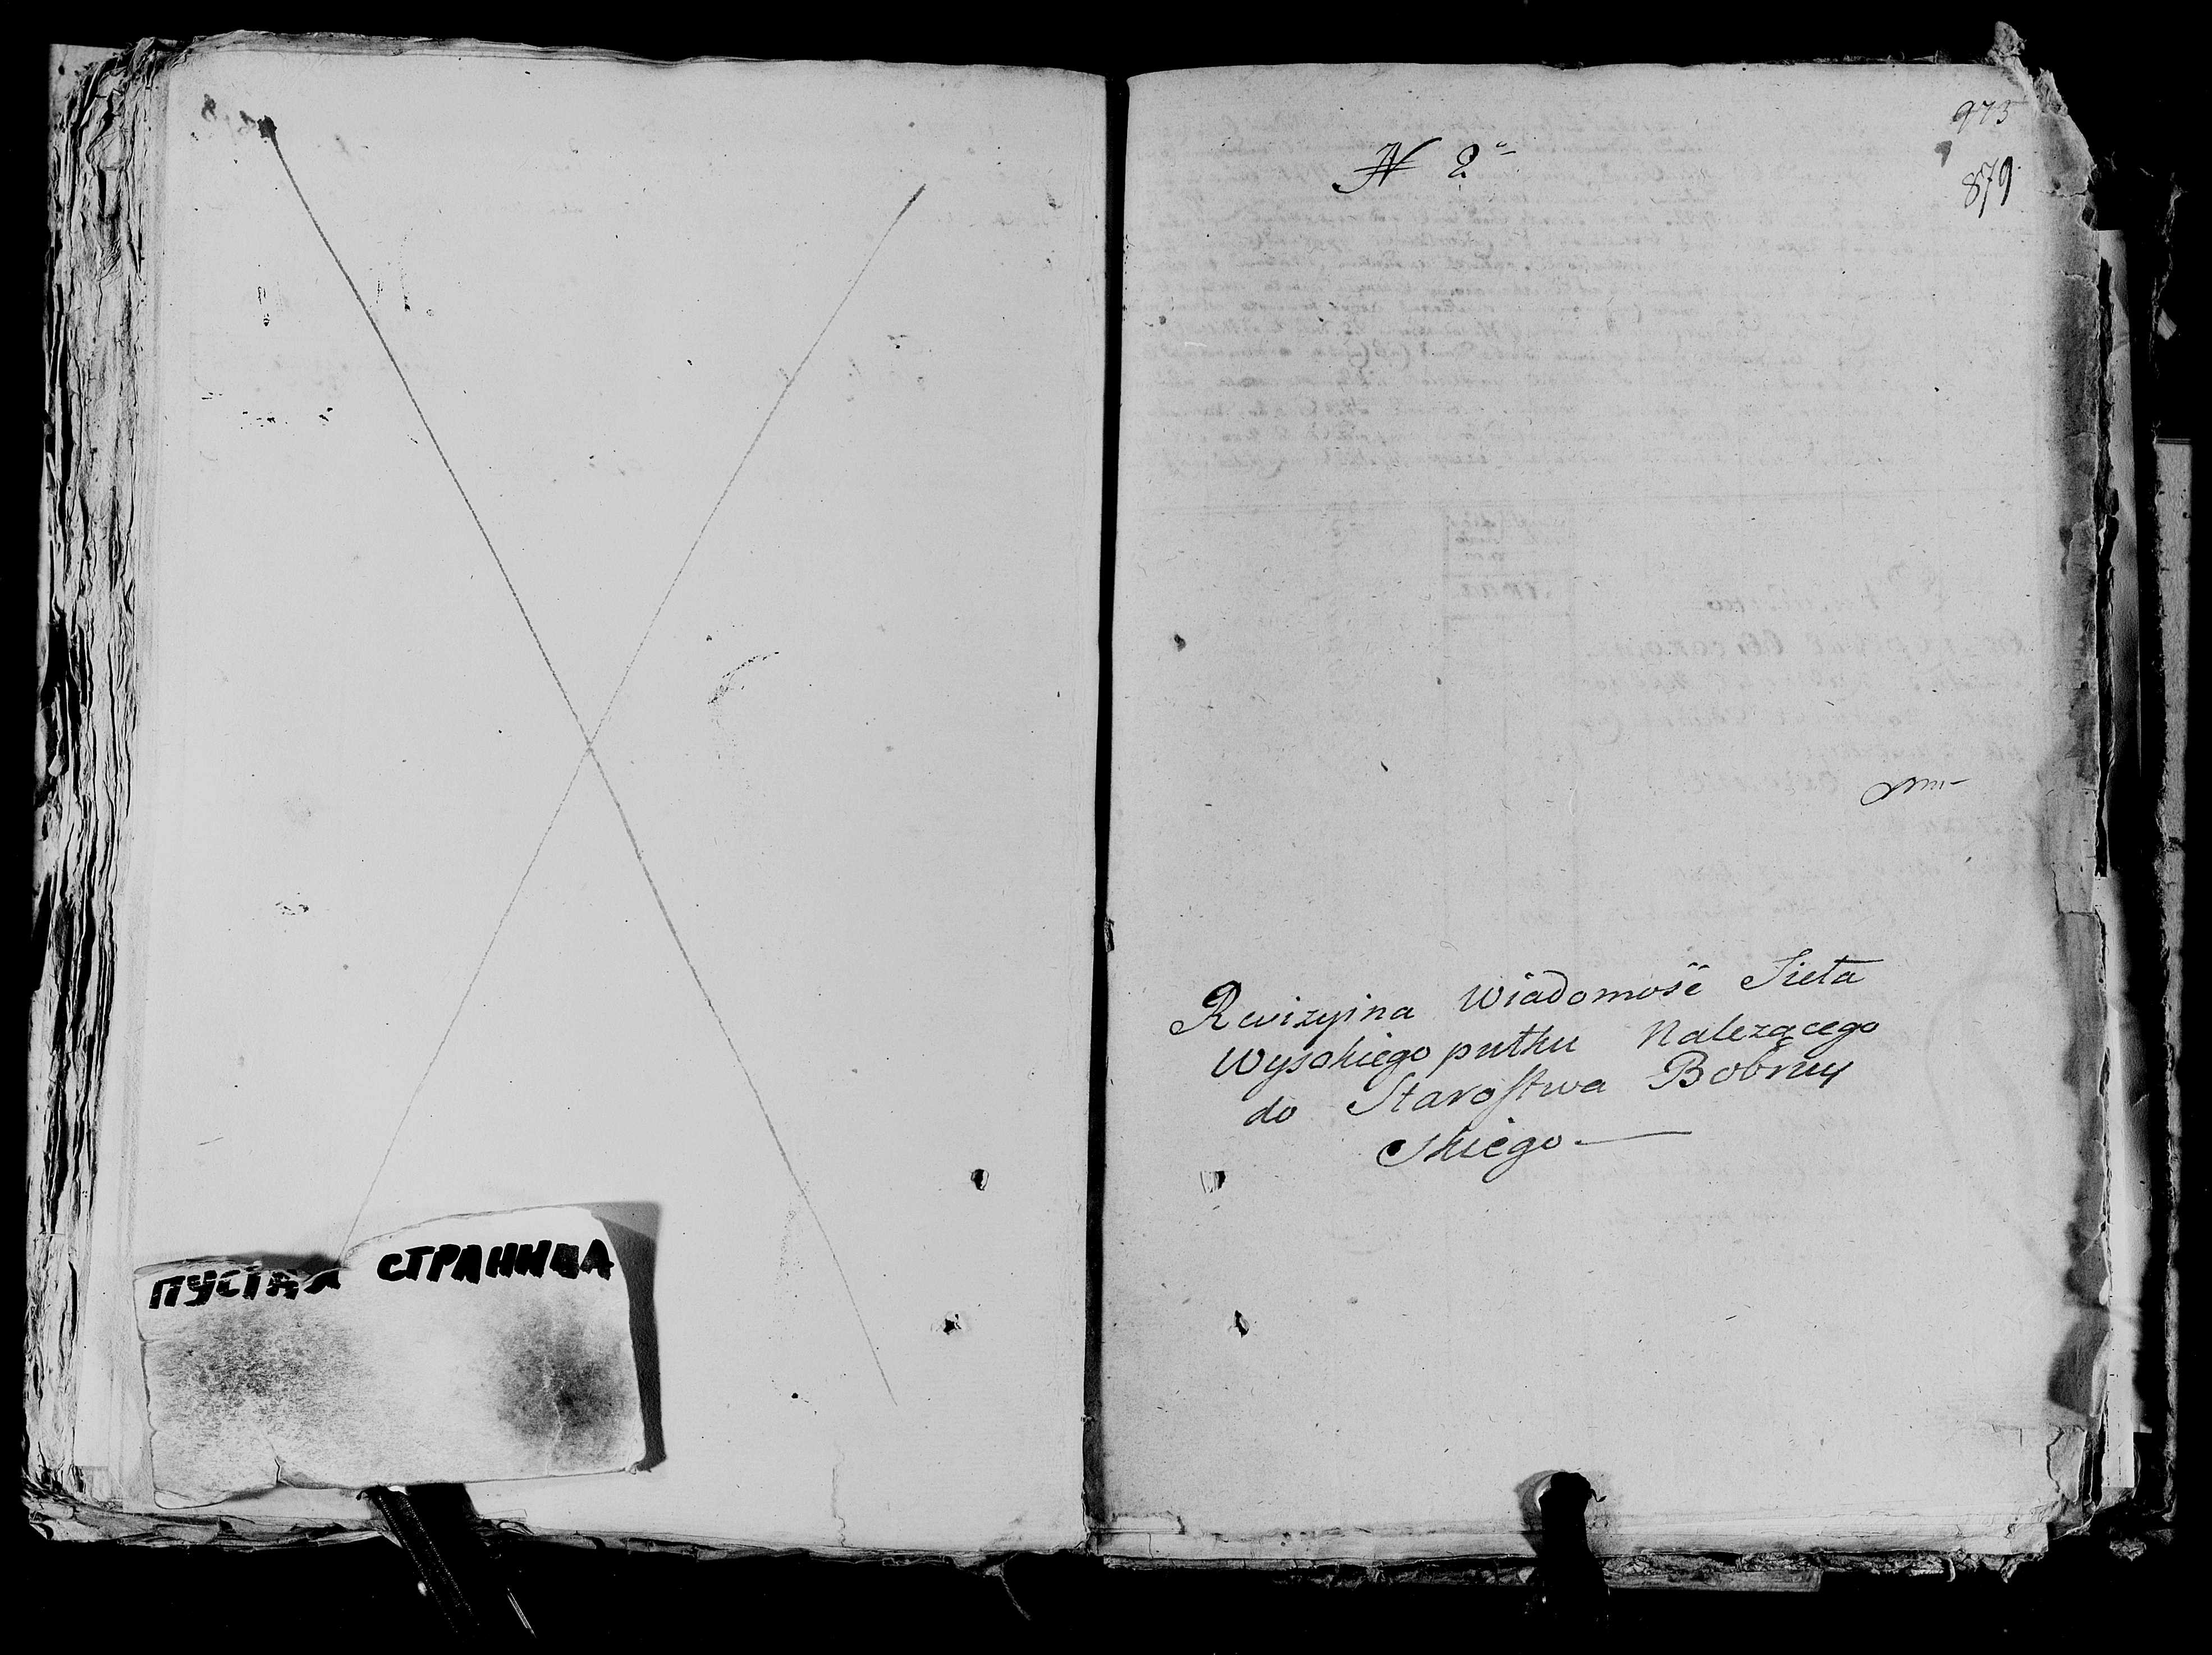 ПУСТАЯ СТРАНИЦА
973
N 2
879
Rewizyina Wiadomość Sieła
Wysokiego pułku Nalezącego
do Starostwa Bobruy
skiego